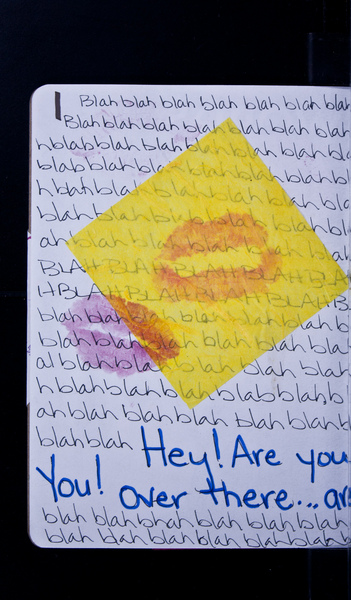 Blah blah blah blah blah blah blah
Blah blah blah blah blah blah blah
h blab blah blah blah blah blah
blab blah blah blah blah blah
h blah blah blah blah blah blah
blah blah blah blah blah blah blah
ah blah blah blah blah blah
BLAH BLAH BLAH BLAH BLAH BLAH
H BLAH BLAH BLAH BLAH BLAH B
blah blah blah blah blah blah b
blah blah blah blah blah bla
al blah blah blah blah blah
h blah blah blah blab blah b
ah blah blah blah blah blah
blah blah Hey! Are you
You! over there... are
blah blah bhah blah blah blah
blah blah blah blah blah blah